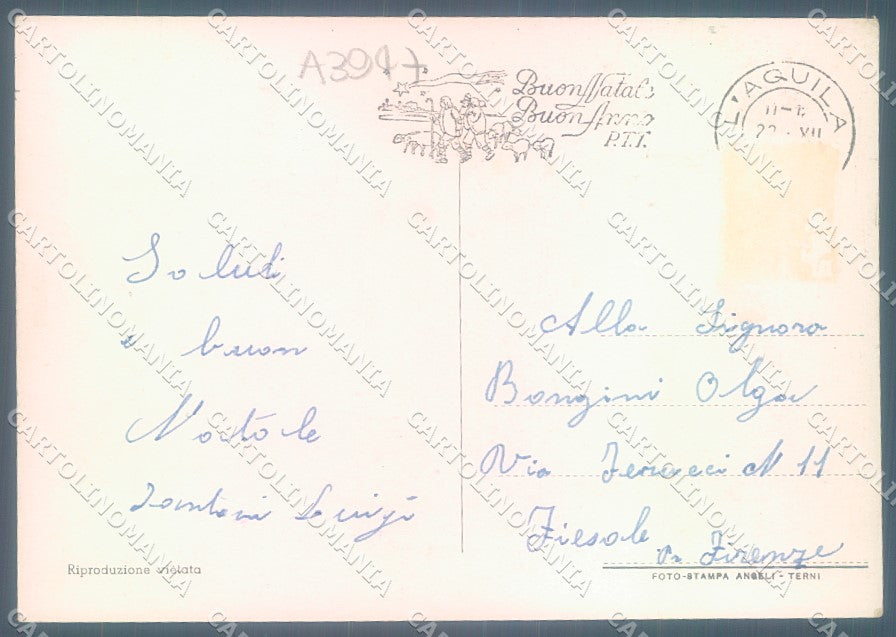 A3947
Buon Natale
Buon Anno
P.T.T.
L'AQUILA
Saluti
e buon
Natale
Santoni Luigi
Alla Signora
Bongini Olga
Via Ferrucci N 11
Fiesole
Pr. Firenze
Riproduzione vietata
FOTO-STAMPA ANGELI - TERNI
CARTOLINOMANIA